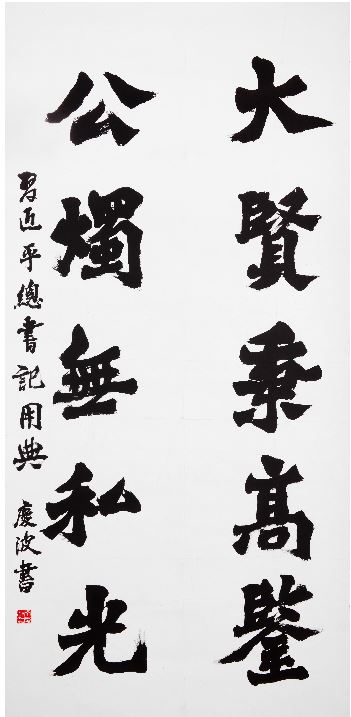 大賢秉高鑒
公燭無私光
習近平總書記用典 慶波書